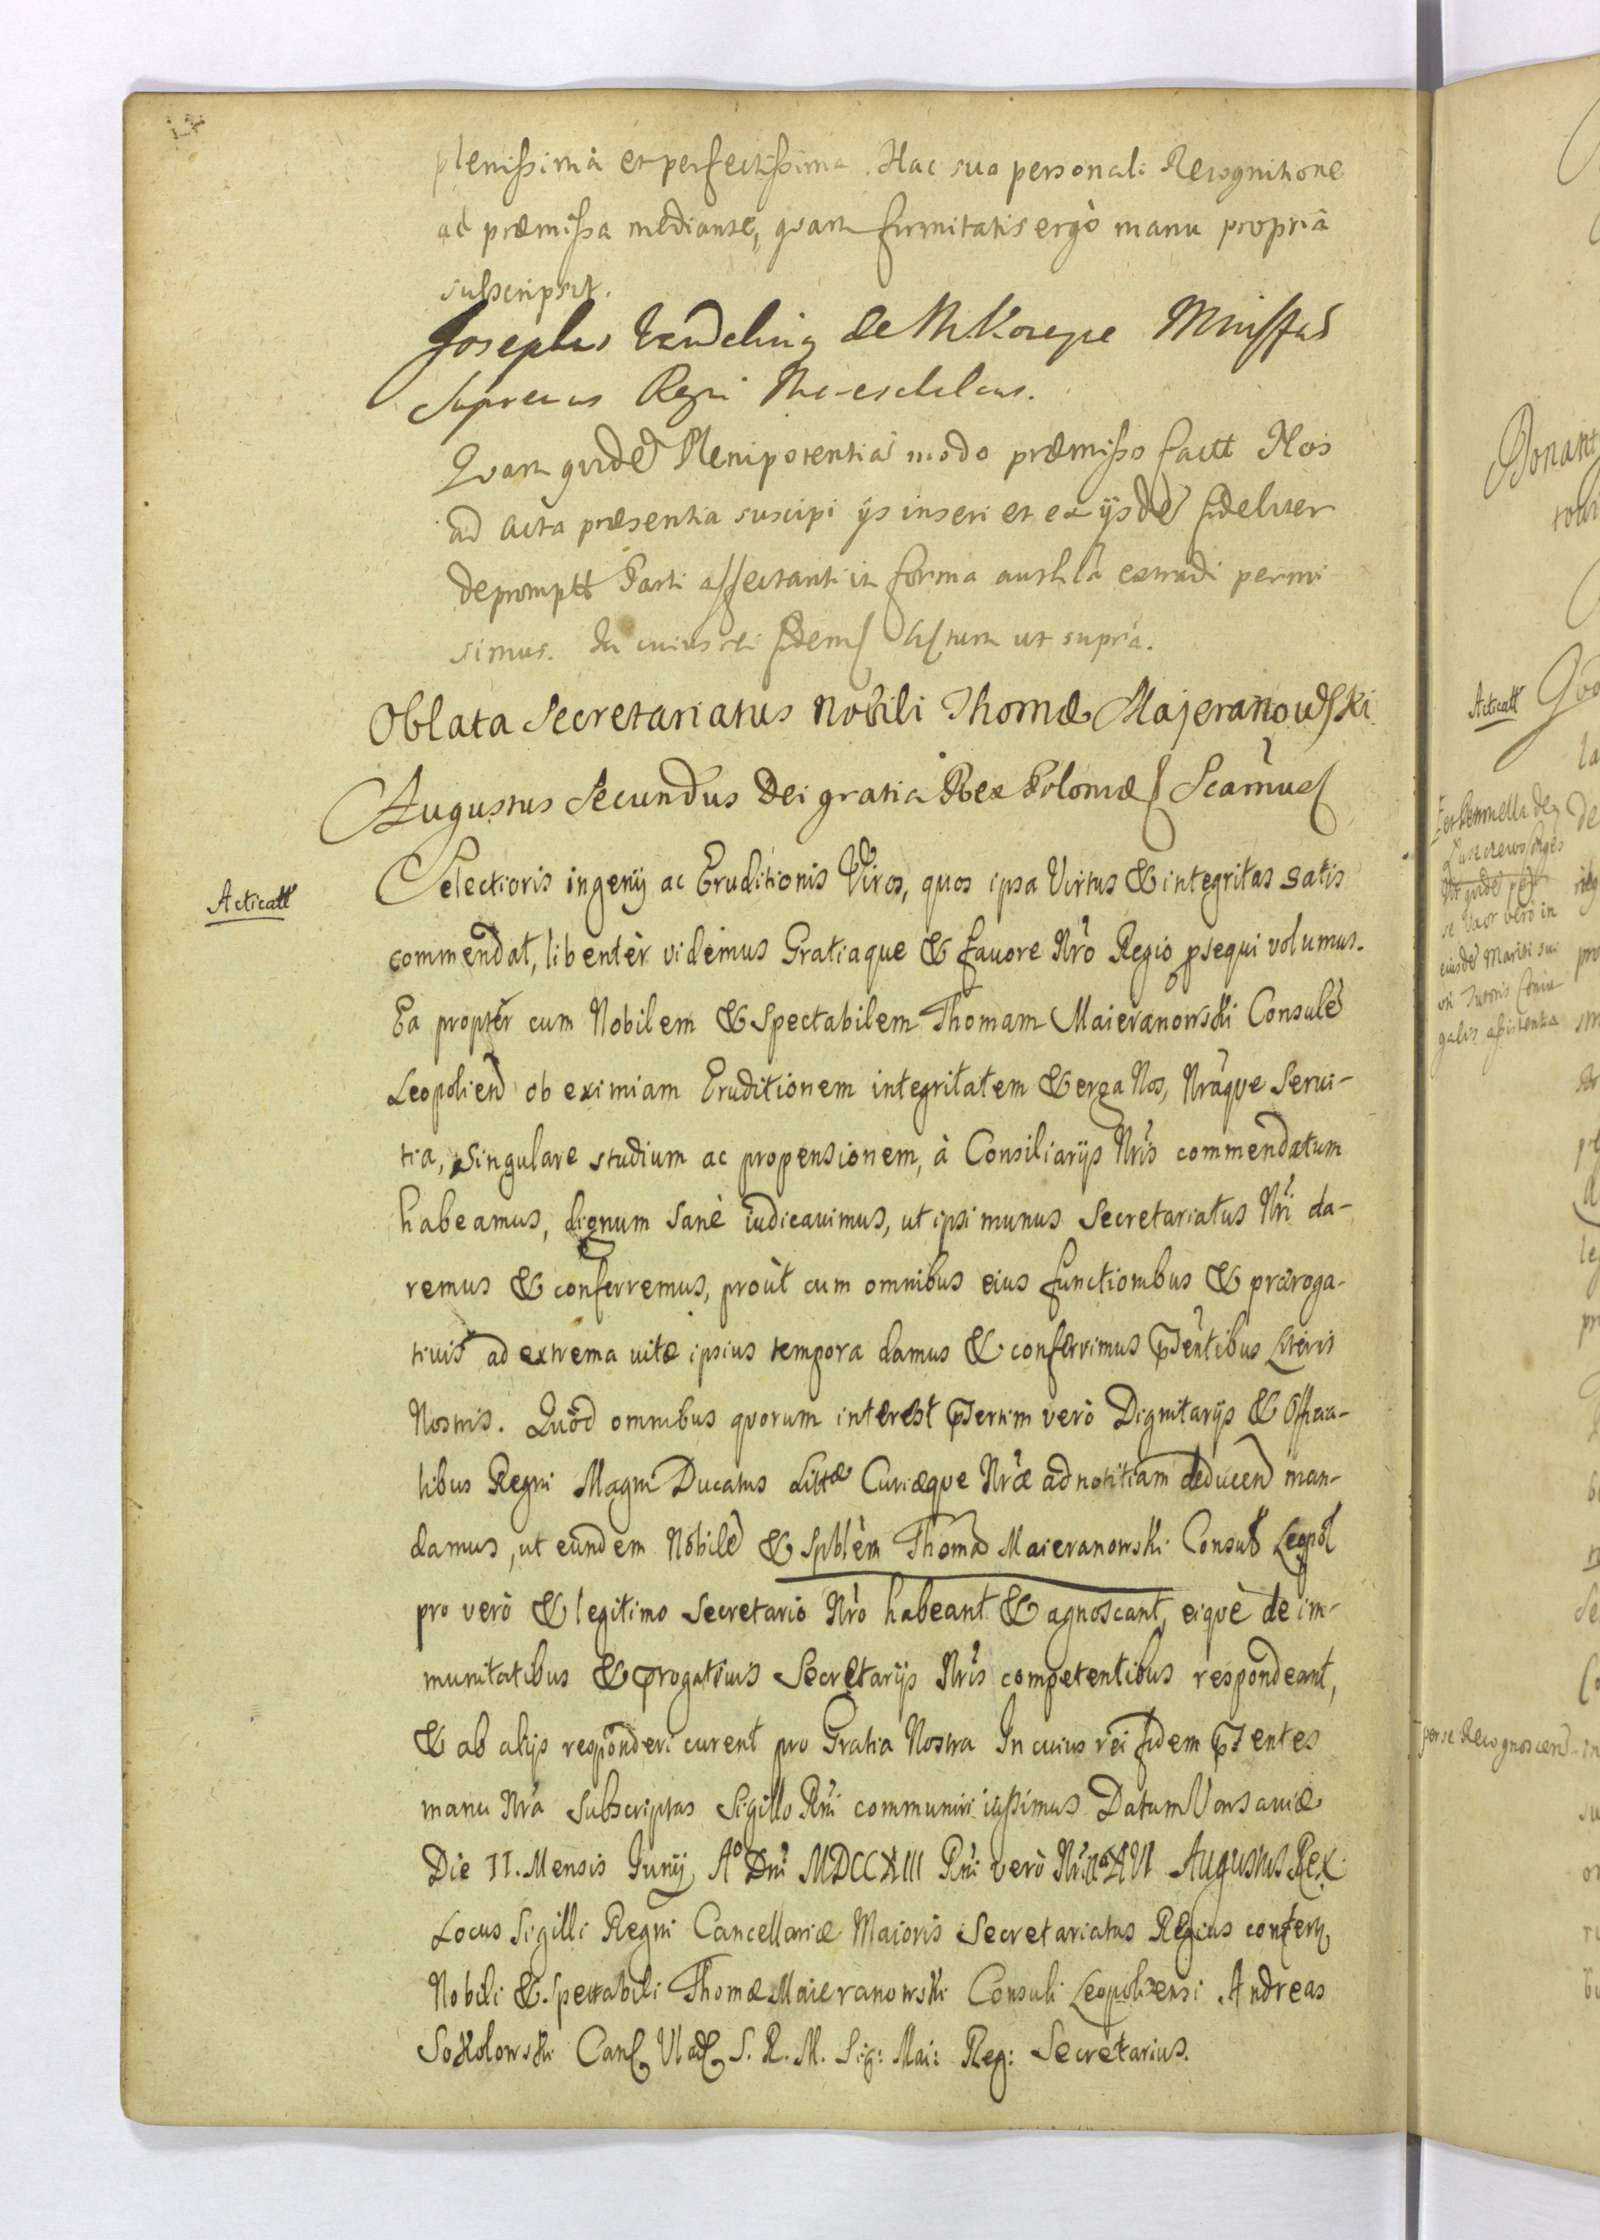 plenissima et perfectissima. Hac sua personali Recognitione
ad præmissa mediante, quam firmitatis ergò manu propriâ
subscripsit.
Josephus de
Supremus Regni
Quam quidē Plenipotentiā modo præmisso factt Nos
ad acta præsentia suscipi ijs inseri et ex ijsdē fideliter
depromptt Parti affectanti in forma authlâ extradi permi
simus. In cuius rei fidem Actum ut suprà.
Oblata Secretariatus Nobili Thomæ Majeranowski
Augustus Secundus Dei gratia Rex Poloniæ
Acticatt
Selectioris ingenij ac Eruditionis Viros, quos ipsa Virtus & integritas satis
commendat, libentèr videmus Gratiaque & favore Nrò Regio psequi volumus.
Ea proptèr cum Nobilem & Spectabilem Thomam Maieranowski Consulē
Leopolien ob eximiam Eruditionem integritatem & erga Nos, Nrāque Servi-
tia, Singulare studium ac propensionem, à Consiliarijs Nrīs commendatum
habeamus, dignum sanè iudicavimus, ut ipsi munus Secretariatus Nrī da-
remus & conferremus, proùt cum omnibus eius functionibus & præroga-
tivis ad extrema vitæ ipsius tempora damus & conferrimus pñtibus Literis
Nostris. Quòd omnibus quorum interest psertim verò Dignitarijs & Officia-
libus Regni Magni Ducatus Littæ Curiæque Nræ ad notitiam deducend man-
damus, ut eundem Nobilē & Spblēm Thomā Maieranowski Consul Leopol
pro verò & legitimo Secretariò Nrò habeant & agnoscant, eiquè de im-
munitatibus & prrogativis Secretarijs Nrīs competentibus respondeant,
& ab alijs responderi curent pro Gratia Nostra In cuius rei fidem psentes
manu Nrā subscriptas Sigillo Rñi communiri iussimus Datum Varsaviæ
Die II. Mensis Junij Aº Dnī MDCCXIII Rñi verò Nrī XVI Augustus Rex
Locus Sigilli Regni Cancellariæ Maioris Secretariatus Regius confertur
Nobili & Spectabili Thomæ Maieranowski Consuli Leopoliensi. Andreas
Sokolowski S. R. M. Sig: Mai: Reg: Secretarius.
Acticatt
per se Recognoscen